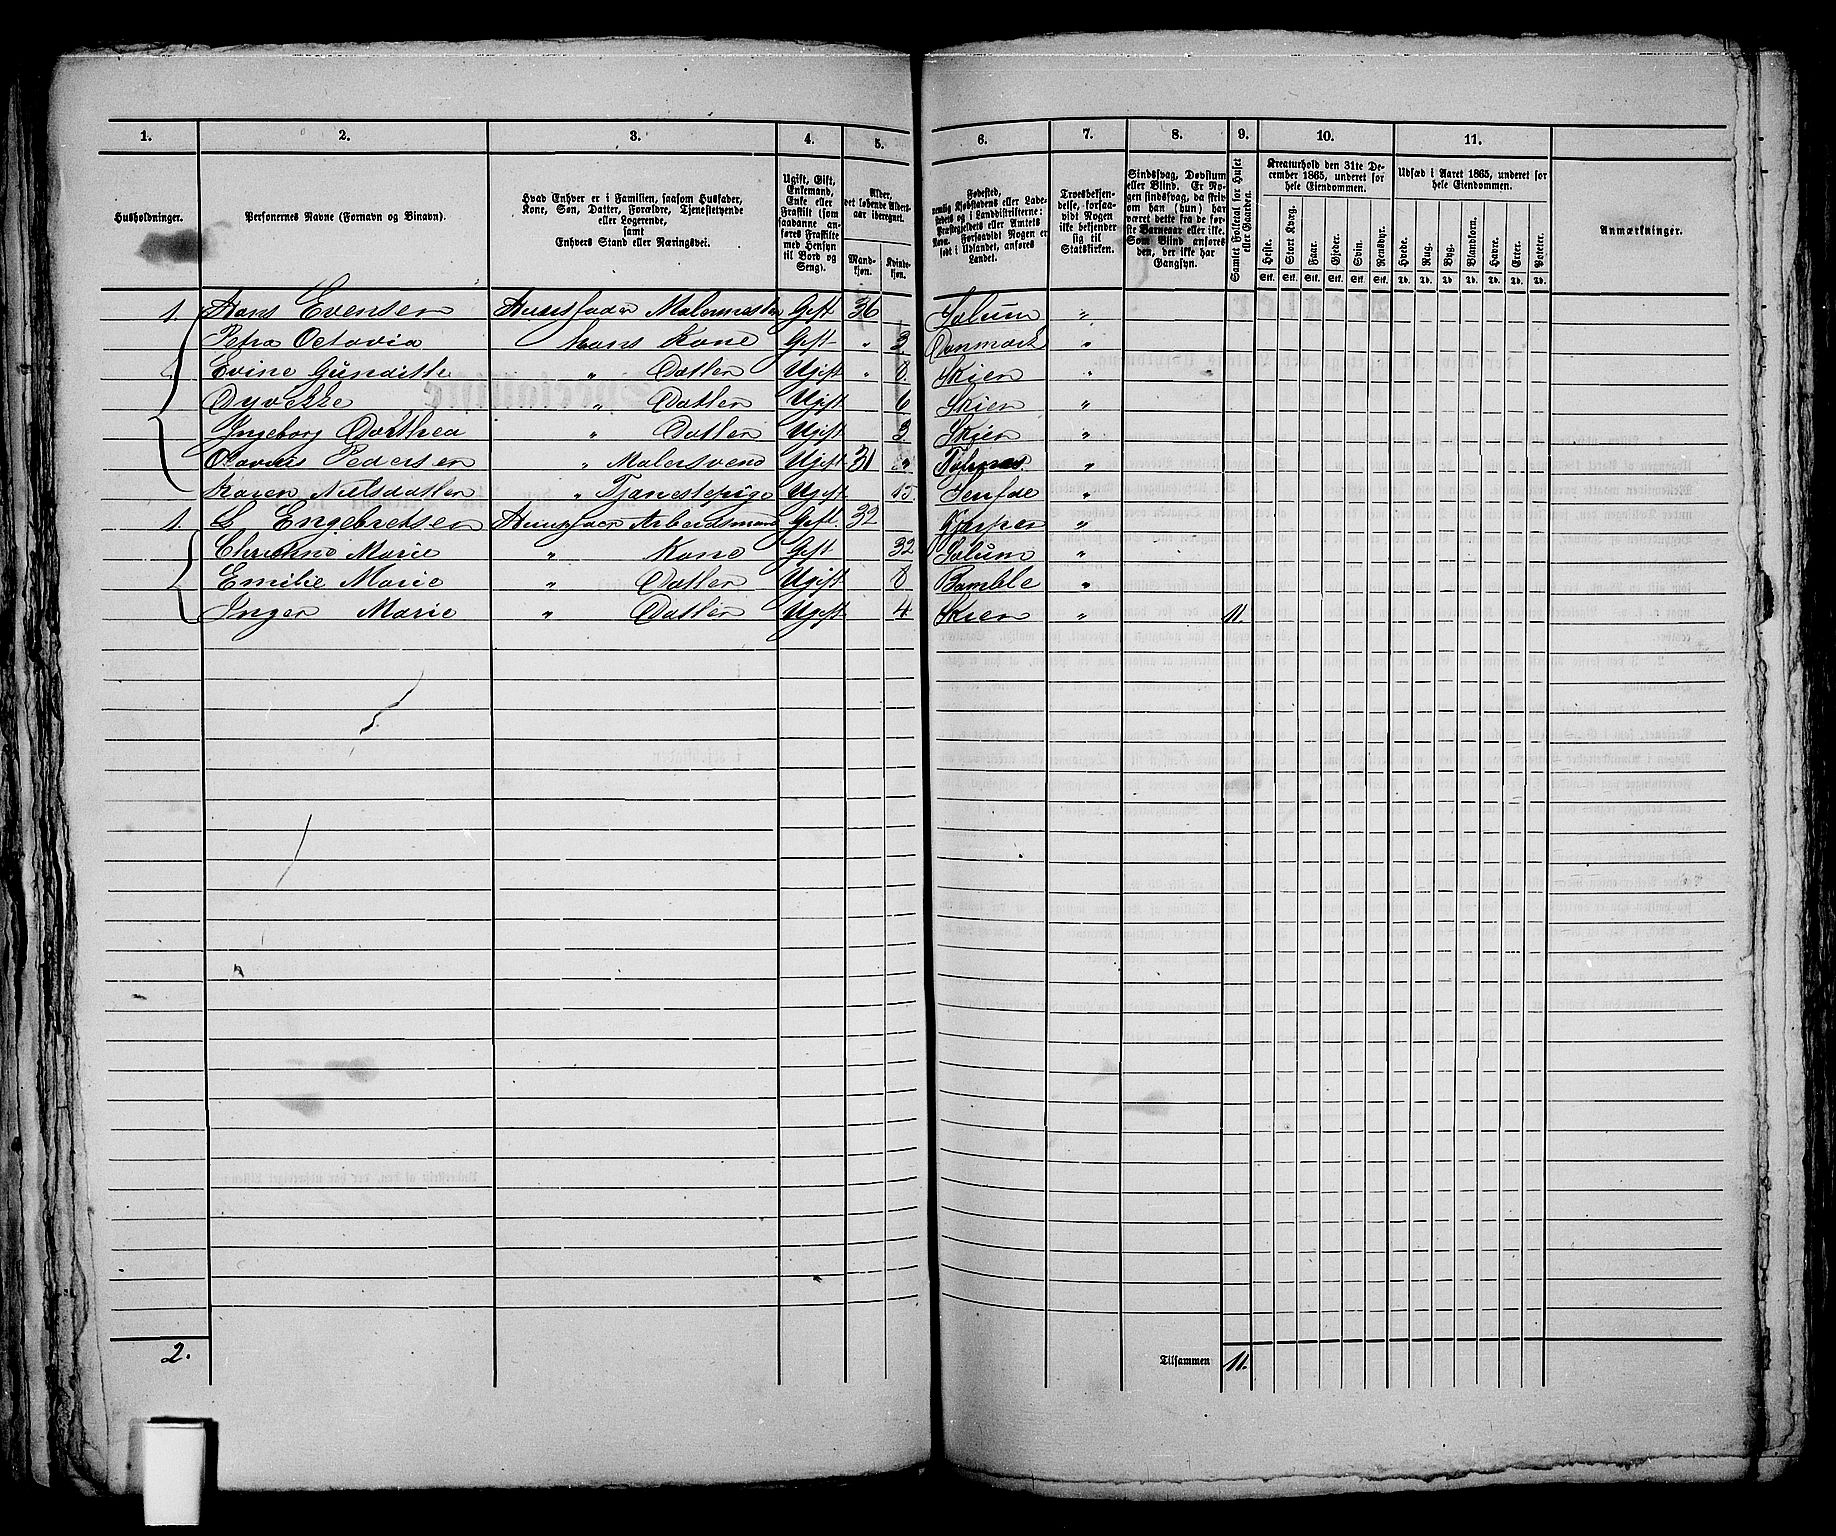 1. 2. 3. 4. 5. 6. 7. 8. 9. 10. 11.
Husholdninger.
Personernes Navne (Fornavn og Binavn).
Hvad Enhver er i Familien, saasom Husfader,
Kone, Søn, Datter, Forældre, Tjenestetyende
eller Logerende,
samt
Enhvers Stand eller Næringsvei.
Ugift, Gift,
Enkemand,
Enke eller
Fraskilt (som
saadanne an-
føres Fraskilte
med Hensyn
til Bord og
Seng).
Alder,
det løbende Alders-
aar iberegnet.
Mand-
kjøn.
Kvinde-
kjøn.
Fødested,
nemlig Kjøbstadens eller Lade-
stedets og i Landdistrikterne:
Præstegjeldets eller Amtets
Navn. Forsaavidt Nogen er
født i Udlandet, anføres
Landet.
Troesbekjen-
delse, forsaa-
vidt Nogen
ikke bekjender
sig til
Statskirken.
Sindssvag, Døvstum
eller Blind. Er No-
gen sindssvag, da skriv
om han (hun) har
været dette fra de før-
ste Barneaar eller ikke.
Som Blind anføres
den, der ikke har
Gangsyn.
Samlet Folketal for Huset
eller Gaarden.
Kreaturhold den 31te De-
cember 1865, underet for
hele Eiendommen.
Heste. Stort Kvæg. Faar. Gjeder. Svin. Rensdyr.
Stk. Stk. Stk. Stk. Stk. Stk.
Udsæd i Aaret 1865, underet for
hele Eiendommen.
Hvede. Rug. Byg. Blandkorn. Havre. Erter. Poteter.
Td. Td. Td. Td. Td. Td. Td.
Anmærkninger.
1. Hans Evensen Huusfader Malermester Gift 36 Solum "
Petra Octavia Hans Kone Gift " Danmark "
Evine Gunilde " Datter Ugift " 8. Skien "
Dyvekke " Datter Ugift 6 Skien "
Ingeborg Dorthea " Datter Ugift 3 Skien "
Pedersen " Malersvend Ugift 31 " "
Karen Nielsdatter " Tjenestepige Ugift 15. "
1. Engebretsen Huusfader Arbeidsmand Gift. 32 Gjerpen "
Christine Marie " Kone Gift 32 Solum "
Emilie Marie " Datter Ugift 8 Bamble "
Inger Marie " Datter Ugift 4 Skien " 11.
2. Tilsammen 11.